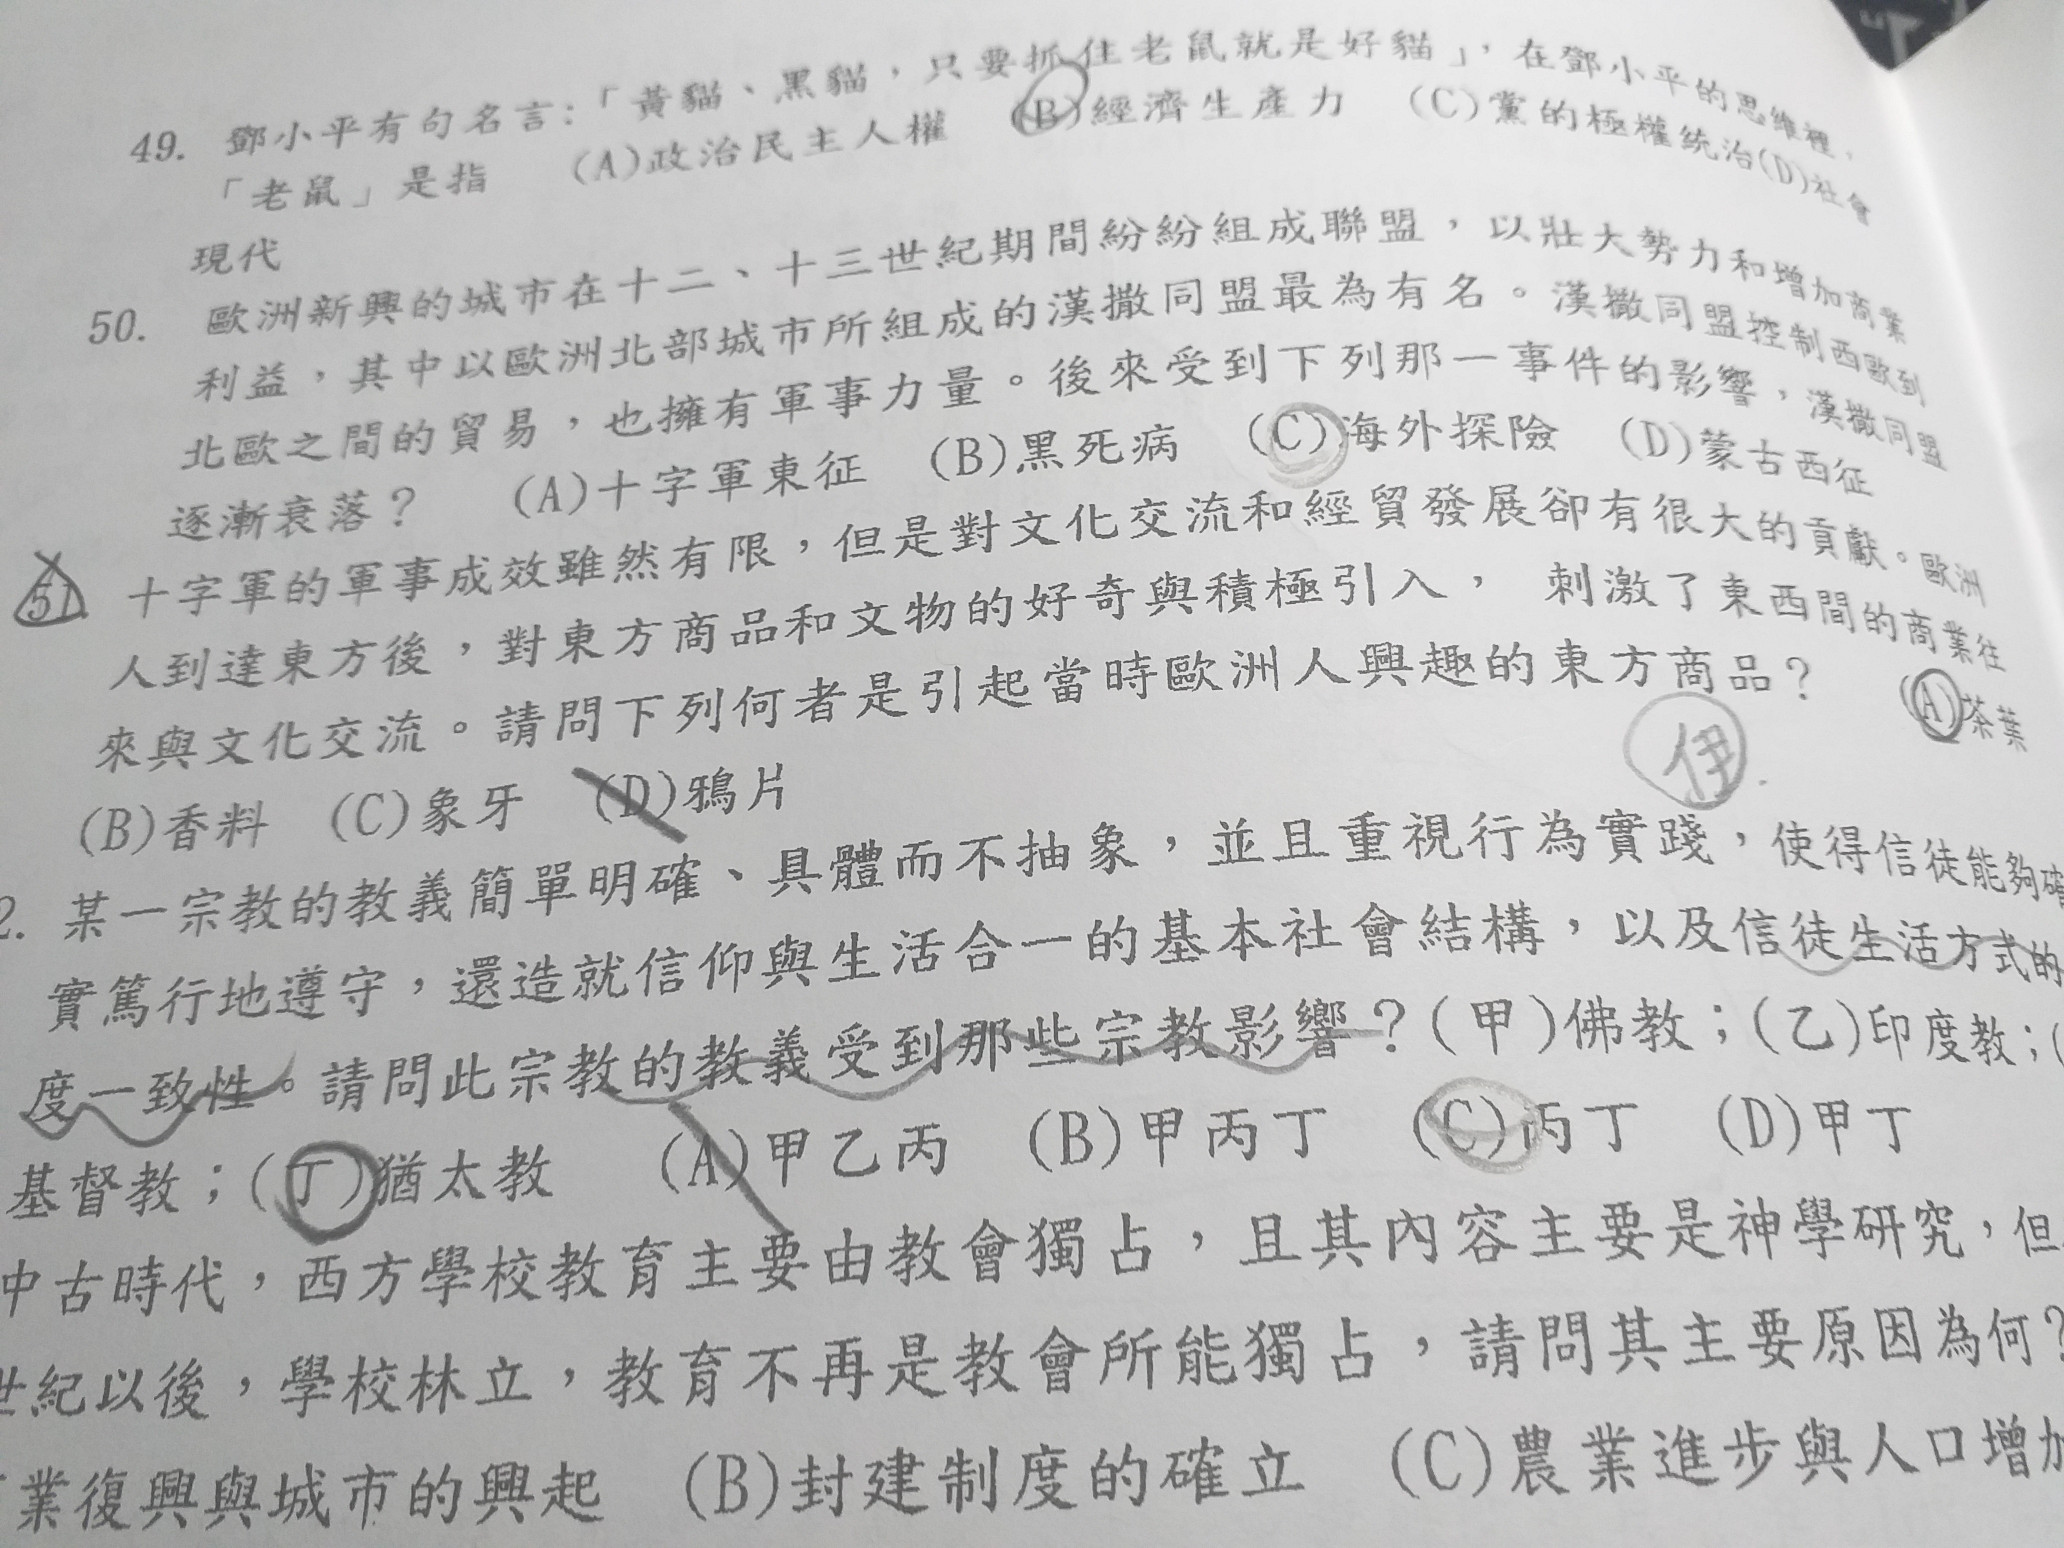 49. 鄧小平有句名言：「黃貓、黑貓，只要抓住老鼠就是好貓」，在鄧小平的思維裡，
「老鼠」是指 (A)政治民主人權 (B)經濟生產力 (C)黨的極權統治(D)社會
現代
50. 歐洲新興的城市在十二、十三世紀期間紛紛組成聯盟，以壯大勢力和增加商業
利益，其中以歐洲北部城市所組成的漢撒同盟最為有名。漢撒同盟控制西歐到
北歐之間的貿易，也擁有軍事力量。後來受到下列那一事件的影響，漢撒同盟
逐漸衰落？ (A)十字軍東征 (B)黑死病 (C)海外探險 (D)蒙古西征
51 十字軍的軍事成效雖然有限，但是對文化交流和經貿發展卻有很大的貢獻。歐洲
人到達東方後，對東方商品和文物的好奇與積極引入， 刺激了東西間的商業往
來與文化交流。請問下列何者是引起當時歐洲人興趣的東方商品？ (A)茶葉
(B)香料 (C)象牙 (D)鴉片
伊
2. 某一宗教的教義簡單明確、具體而不抽象，並且重視行為實踐，使得信徒能夠確
實篤行地遵守，還造就信仰與生活合一的基本社會結構，以及信徒生活方式的
度一致性。請問此宗教的教義受到那些宗教影響？(甲)佛教；(乙)印度教；(
基督教；(丁)猶太教 (A)甲乙丙 (B)甲丙丁 (C)丙丁 (D)甲丁
中古時代，西方學校教育主要由教會獨占，且其內容主要是神學研究，但
世紀以後，學校林立，教育不再是教會所能獨占，請問其主要原因為何？
業復興與城市的興起 (B)封建制度的確立 (C)農業進步與人口增加